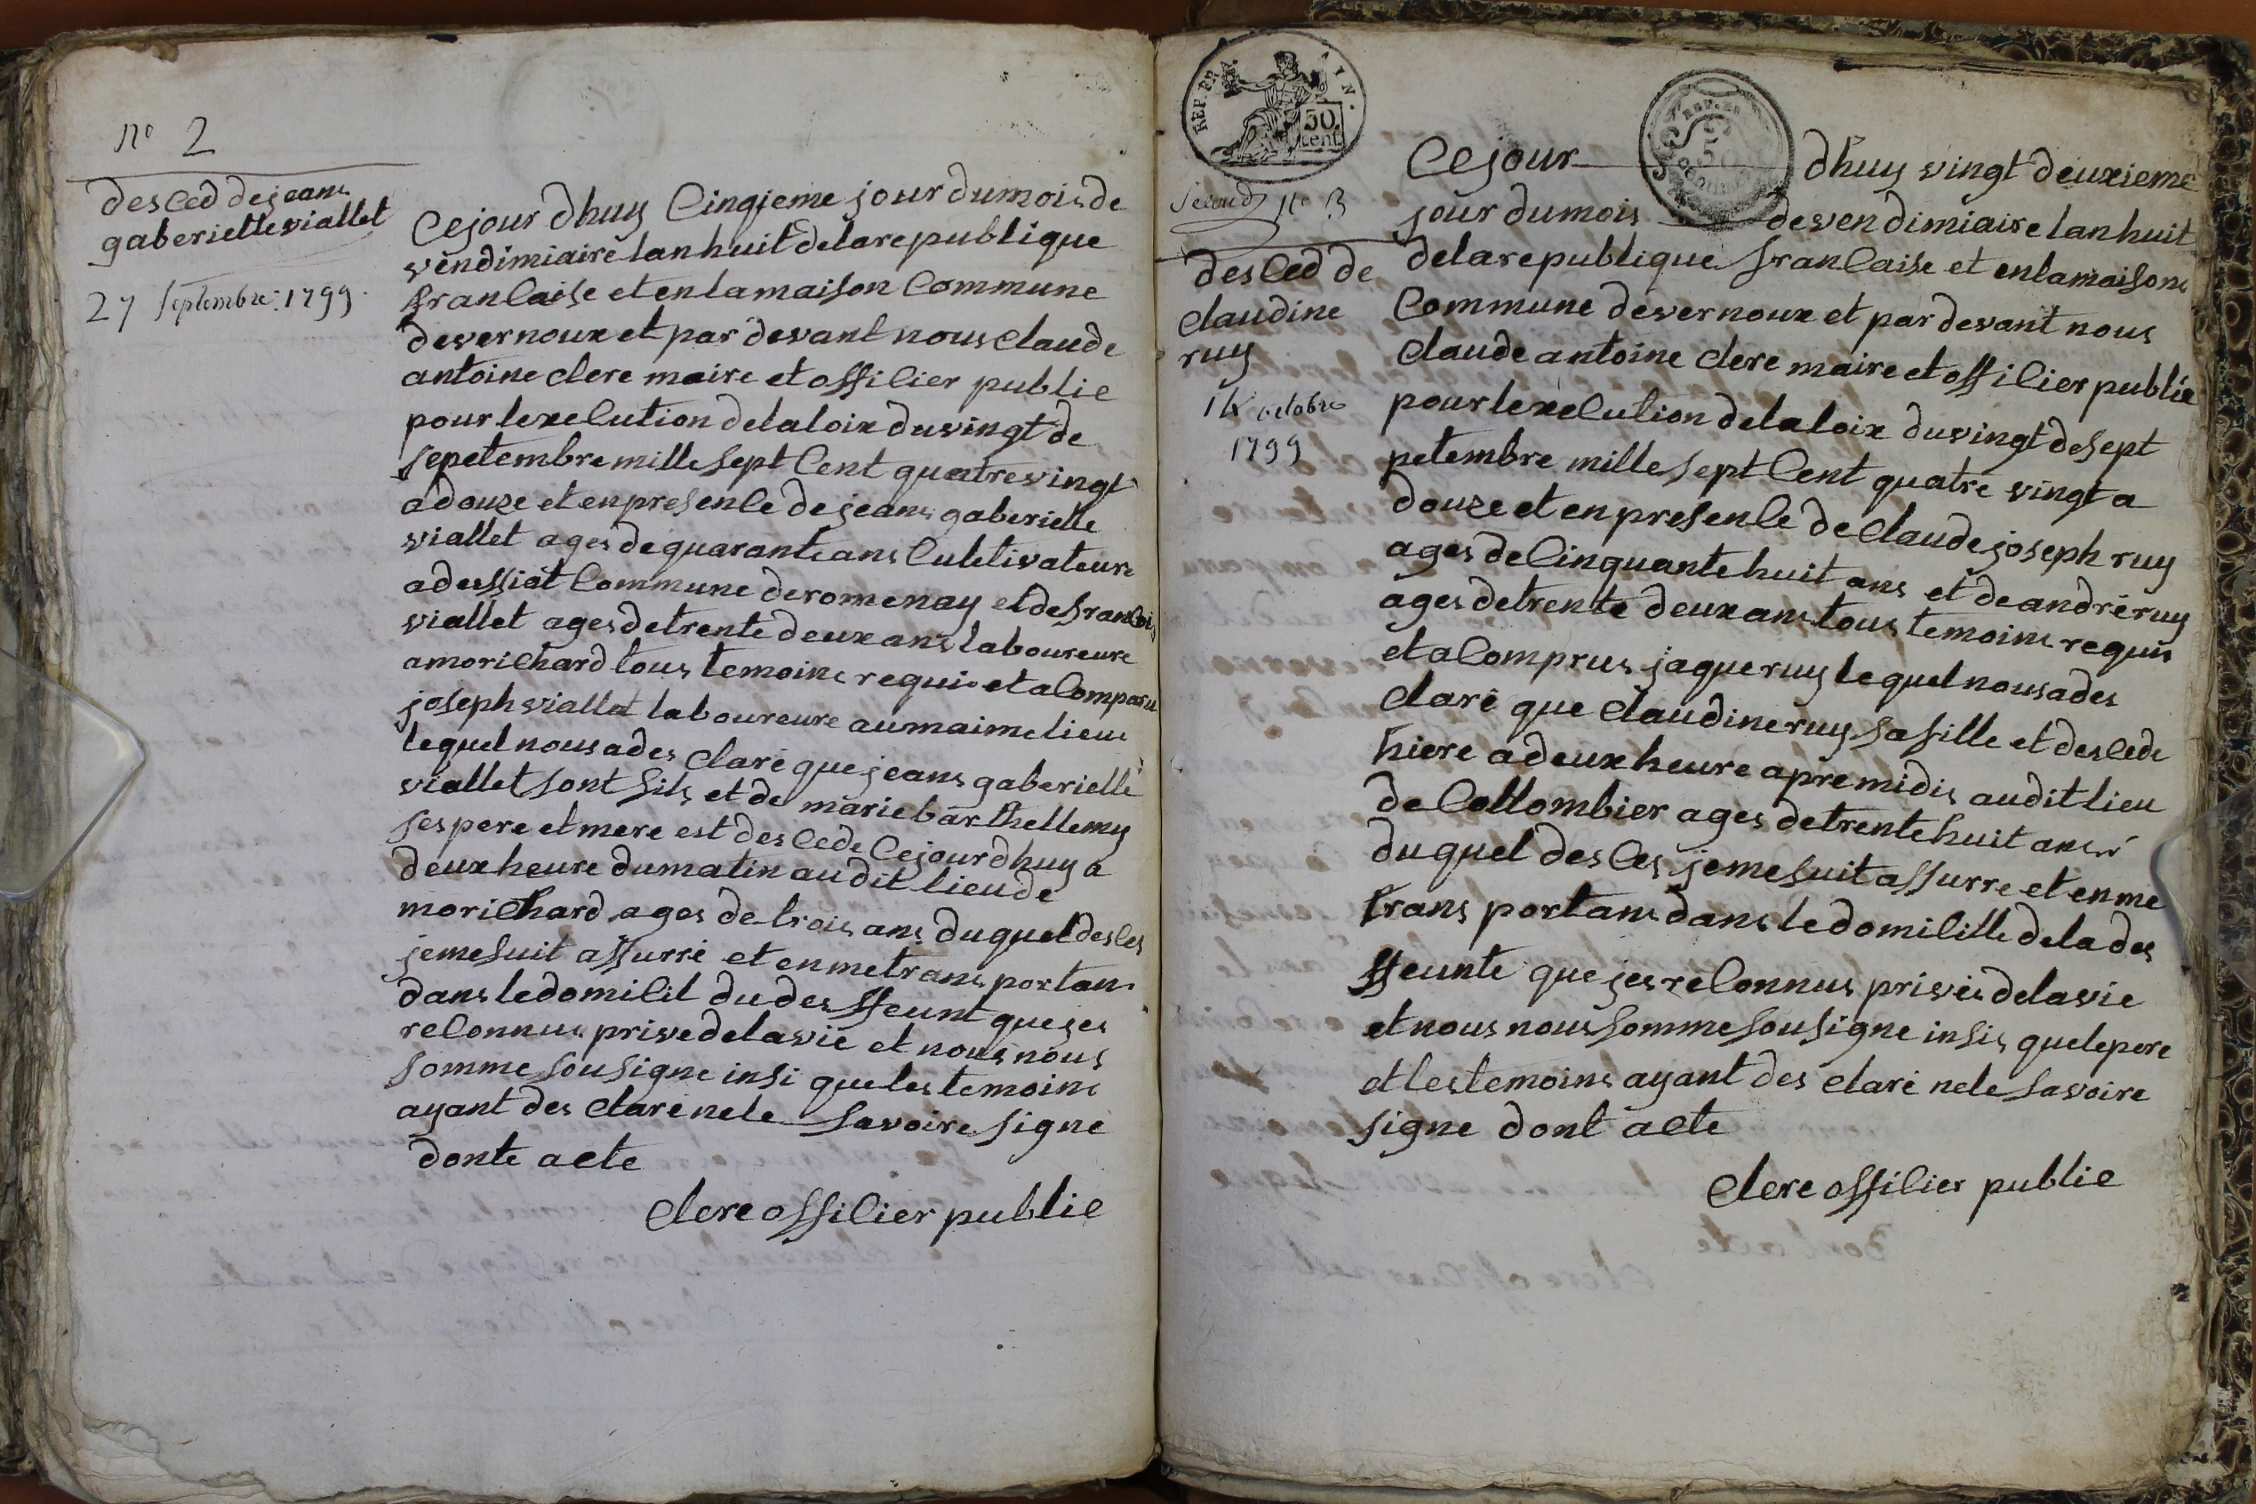 n° 2
desced de jeans
gaberielle viallet
27 Septembre: 1799.
Cejour dhuy Cinqieme jour dumois de
vendimiaire lan huit delarepublique
francaise et en lamaison Commune
devernoux et par devant nous claude
antoine clerc maire et officier public
pour lexecution delaloix duvingt de
sepetembre mille sept Cent quatrevingt
adouze et enpresence de jeans gaberielle
viallet ages dequarante ans Cultivateure
adessiat Commune deromenay et defrancois
viallet ages detrente deux ans laboureure
amorichard tous temoins requis et a Comparu
joseph viallet laboureure aumaime lieue
lequel nousades claré que jeans gaberielle
viallet sont fils et de marie barthellemy
ses pere et mere est descede Cejourdhuy a
deux heure dumatin audit lieude
morichard ages de trois ans duquel desces
jemesuit assurré et enmetrans portans
dans ledomicil dudes ffeunt queges
reConnus prive delavie et nous nous
somme sousigne insi que les temoins
ayant des claré nele savoire signe
donte acte
clerc officier public
REP. FRA. AYN.
50 cent
REP. FR
50
Second n° 3
desced de
claudine
ruy
14 octobre
1799
Cejour dhuy vingt deuxieme
jour dumois devendimiaire lanhuit
delarepublique francaise et enlamaisons
Commune devernoux et par devant nous
claude antoine clerc maire et officier public
pour lexecution delaloix duvingt desept
petembre mille sept Cent quatre vingt a
douze et enpresence de claude joseph ruy
ages deCinquante huit ans et de andré ruy
ages detrente deux ans tous temoins requis
et aComprus jaque ruy lequel nousades
claré que claudine ruy sa fille et descede
hiere adeux heure apre midis audit lieu
de Collombier ages detrente huit ans
duquel desces jemesuit assurre et enme
trans portans dans ledomicille delades
ffeunte que jes reConnus privés delavie
et nous nous somme sousigne insis quelepere
et les temoins ayant des claré nele savoire
signe dont acte
clerc officier public